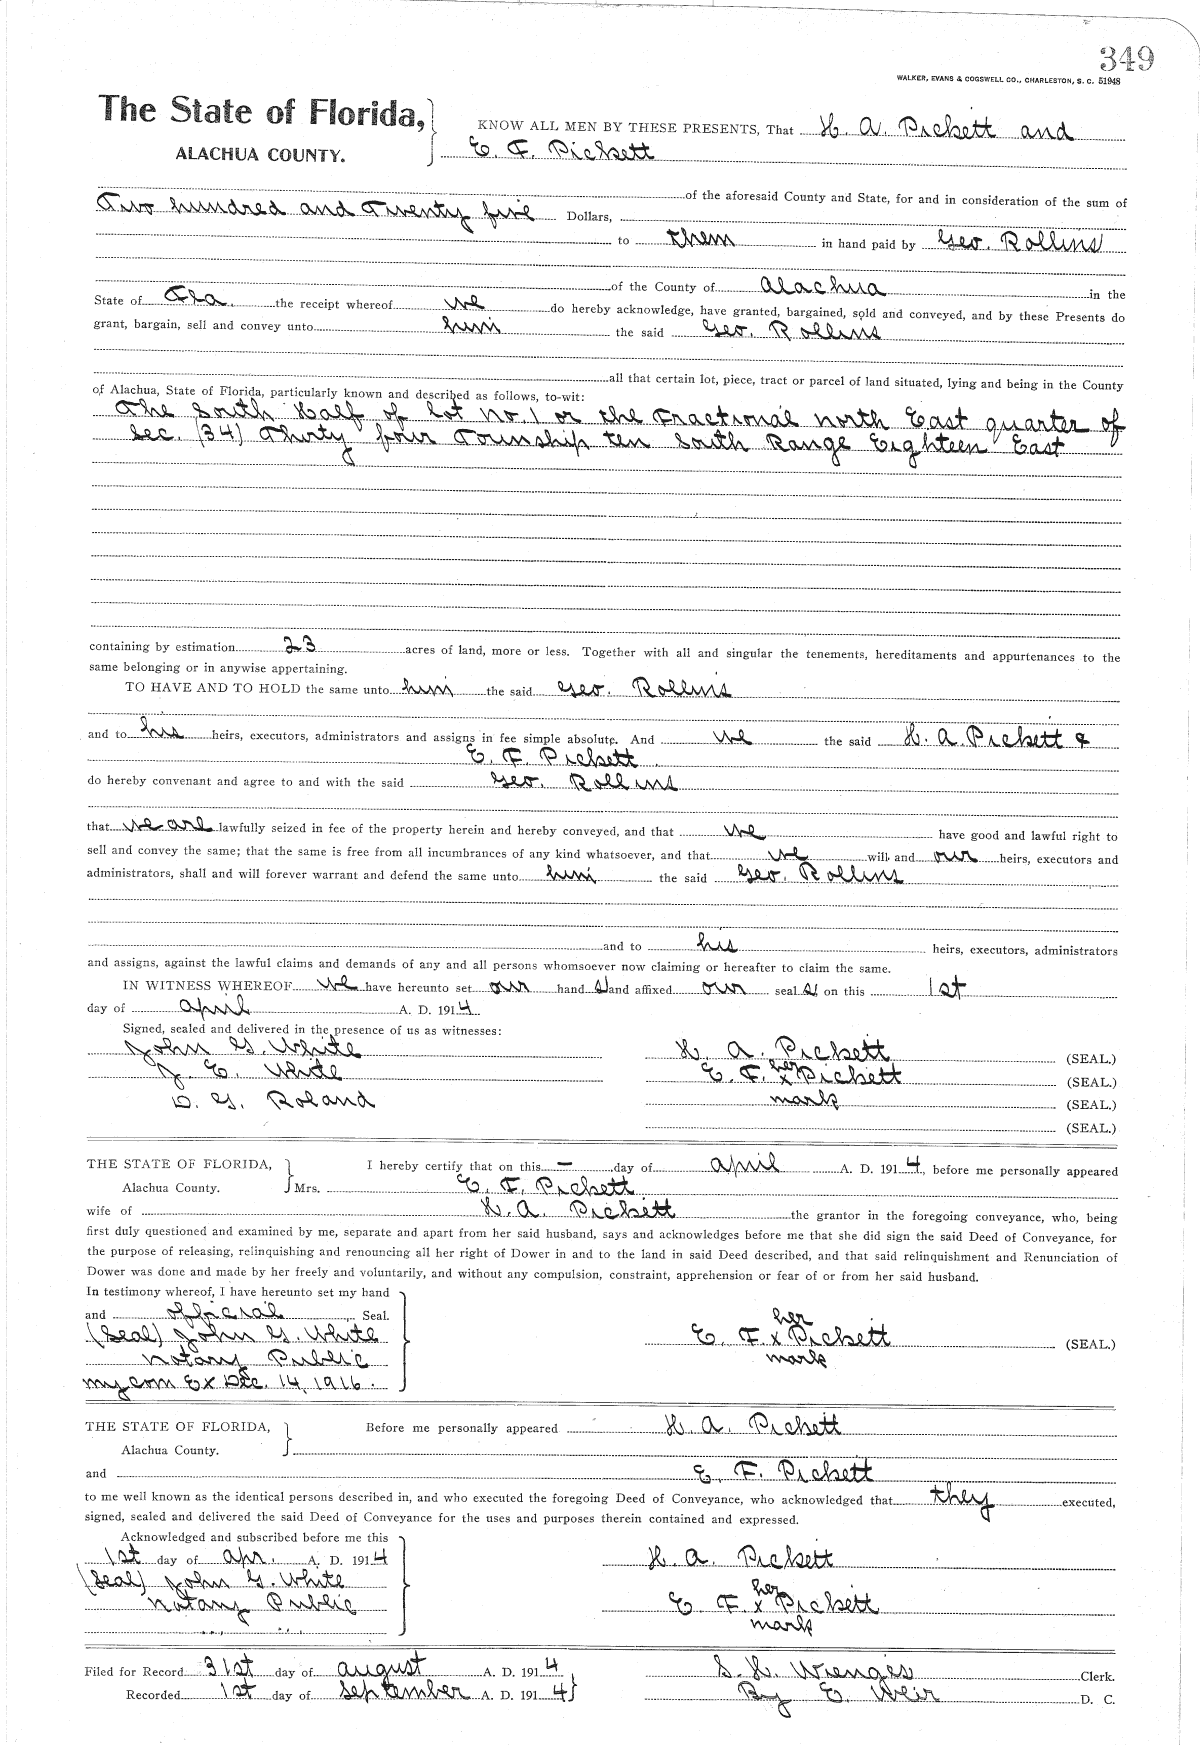 349
WALKER, EVANS & COGSWELL CO., CHARLESTON, S. C. 51948
The State of Florida,
ALACHUA COUNTY.
KNOW ALL MEN BY THESE PRESENTS, That H. A. Pickett and
E. F. Pickett
of the aforesaid County and State, for and in consideration of the sum of
Two hundred and Twenty five Dollars,
to them in hand paid by Geo. Rollins
of the County of Alachua in the
State of Fla. the receipt whereof we do hereby acknowledge, have granted, bargained, sold and conveyed, and by these Presents do
grant, bargain, sell and convey unto him the said Geo. Rollins
all that certain lot, piece, tract or parcel of land situated, lying and being in the County
of Alachua, State of Florida, particularly known and described as follows, to-wit:
The South Half of Lot No. 1 or the Fractional north East quarter of
Sec. (34) Thirty four Township ten South Range Eighteen East
containing by estimation 23 acres of land, more or less. Together with all and singular the tenements, hereditaments and appurtenances to the
same belonging or in anywise appertaining.
TO HAVE AND TO HOLD the same unto him the said Geo. Rollins
and to his heirs, executors, administrators and assigns in fee simple absolute. And we the said H. A. Pickett &
E. F. Pickett
do hereby convenant and agree to and with the said Geo. Rollins
that we are lawfully seized in fee of the property herein and hereby conveyed, and that we have good and lawful right to
sell and convey the same; that the same is free from all incumbrances of any kind whatsoever, and that we will and our heirs, executors and
administrators, shall and will forever warrant and defend the same unto him the said Geo. Rollins
and to his heirs, executors, administrators
and assigns, against the lawful claims and demands of any and all persons whomsoever now claiming or hereafter to claim the same.
IN WITNESS WHEREOF we have hereunto set our hand s and affixed our seal s on this 1st
day of April A. D. 1914
Signed, sealed and delivered in the presence of us as witnesses:
John G. White H. A. Pickett (SEAL.)
J. E. White E. F. her x Pickett (SEAL.)
D. G. Roland mark (SEAL.)
(SEAL.)
THE STATE OF FLORIDA, I hereby certify that on this — day of April A. D. 1914, before me personally appeared
Alachua County. Mrs. E. F. Pickett
wife of H. A. Pickett the grantor in the foregoing conveyance, who, being
first duly questioned and examined by me, separate and apart from her said husband, says and acknowledges before me that she did sign the said Deed of Conveyance, for
the purpose of releasing, relinquishing and renouncing all her right of Dower in and to the land in said Deed described, and that said relinquishment and Renunciation of
Dower was done and made by her freely and voluntarily, and without any compulsion, constraint, apprehension or fear of or from her said husband.
In testimony whereof, I have hereunto set my hand
and official Seal. her
(Seal) John G. White E. F. x Pickett (SEAL.)
Notary Public mark
my com Ex Dec. 14, 1916.
THE STATE OF FLORIDA, Before me personally appeared H. A. Pickett
Alachua County.
and E. F. Pickett
to me well known as the identical persons described in, and who executed the foregoing Deed of Conveyance, who acknowledged that they executed,
signed, sealed and delivered the said Deed of Conveyance for the uses and purposes therein contained and expressed.
Acknowledged and subscribed before me this
1st day of Apr. A. D. 1914 H. A. Pickett
(Seal) John G. White her
Notary Public E. F. x Pickett
mark
Filed for Record 31st day of August A. D. 1914 S. H. Wienges Clerk.
Recorded 1st day of September A. D. 1914 By E. Weir D. C.